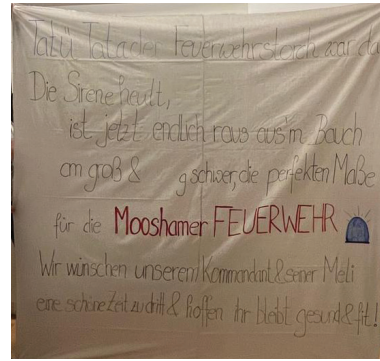 Tatü Tata der Feuerwehrstorch war da
Die Sirene heult,
ist jetzt endlich raus aus'm Bauch
cm groß & g schwer, die perfekten Maße
für die Mooshamer FEUERWEHR
Wir wünschen unserem Kommandant & seiner Meli
eine schöne Zeit zu dritt & hoffen ihr bleibt gesund & fit!